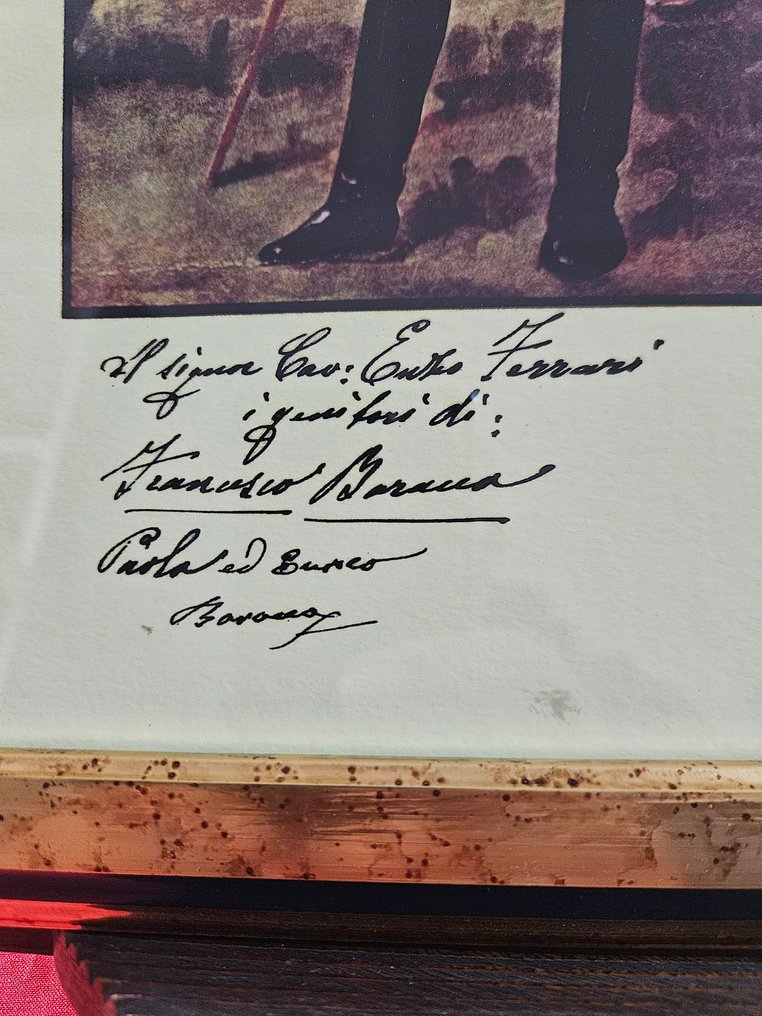 Al signor Cav: Enzo Ferrari
i genitori di:
Francesco Baracca
Paola ed Enrico
Baracca